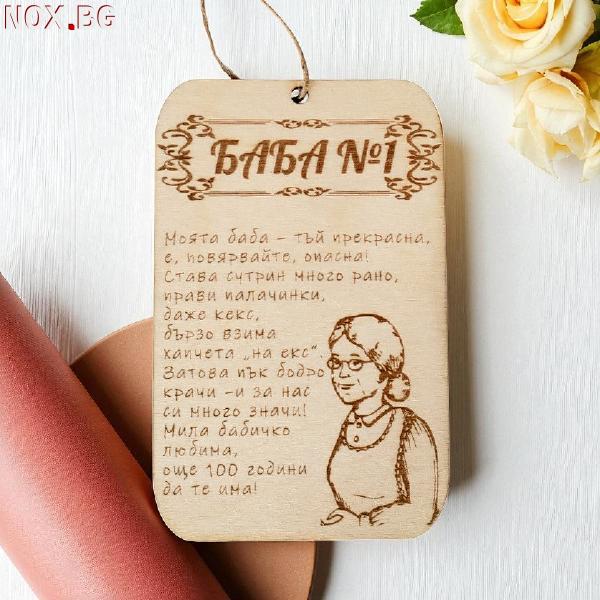 NOX.BG
БАБА №1
Моята баба – тъй прекрасна,
е, повярвайте, опасна!
Става сутрин много рано,
прави палачинки,
даже кекс,
бързо взима
хапчета „на екс“.
Затова пък бодро
крачи -и за нас
си много значи!
Мила бабичко
любима,
още 100 години
да те има!